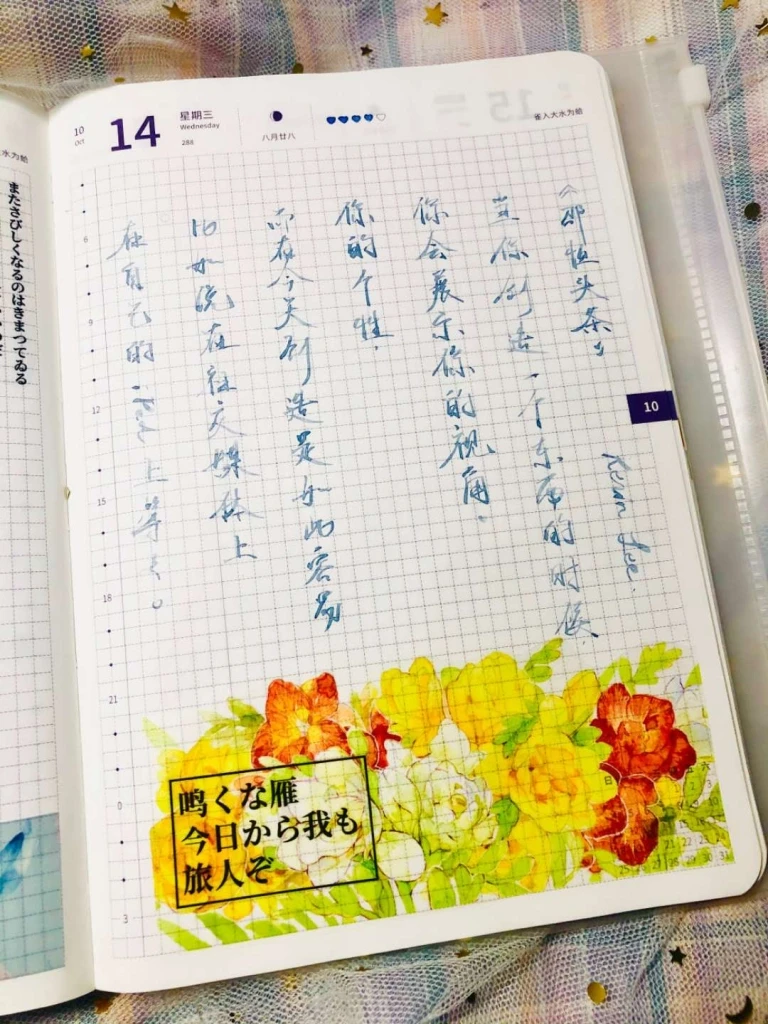 またさびしくなるのはきまつてゐる
10
Oct
14
星期三
Wednesday
288
八月廿八
雀入大水为蛤
《邵恒头条》
Kevin Lee.
当你创造一个东西的时候
你会展示你的视角.
你的个性.
而在今天创造是如此容易
比如说在社交媒体上
在自己的
上等等。
6
9
12
15
18
21
0
3
10
鸣くな雁
今日から我も
旅人ぞ
日
25 26 27 28 29 30 31